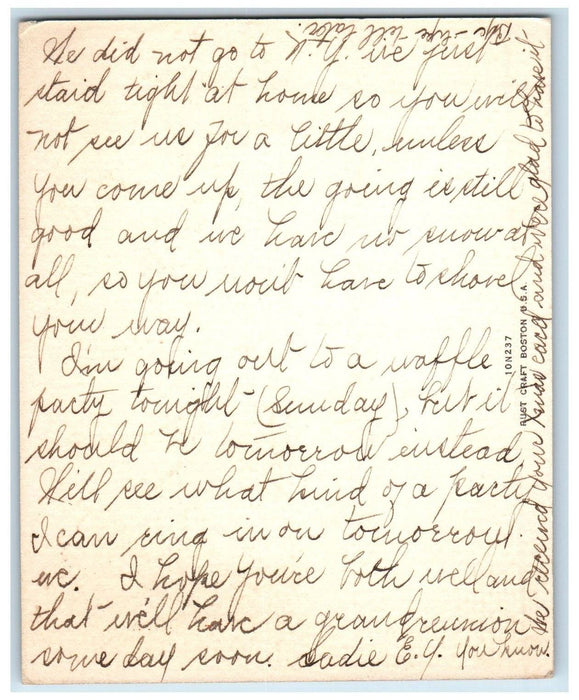 We did not go to N.Y. we just
staid tight at home so you will
not see us for a little, unless
you come up, the going is still
good and we have no snow at
all, so you won't have to shovel
your way.
I'm going out to a waffle
party tonight (Sunday), but it
should be tomorrow instead
We'll see what kind of a party
I can ring in on tomorrow.
eve. I hope you're both well and
that we'll have a grand reunion
some day soon. Sadie E. G. you know.
We received your Xmas card and were glad to have it
Bye - bye till later.
10N237
RUST CRAFT BOSTON U.S.A.